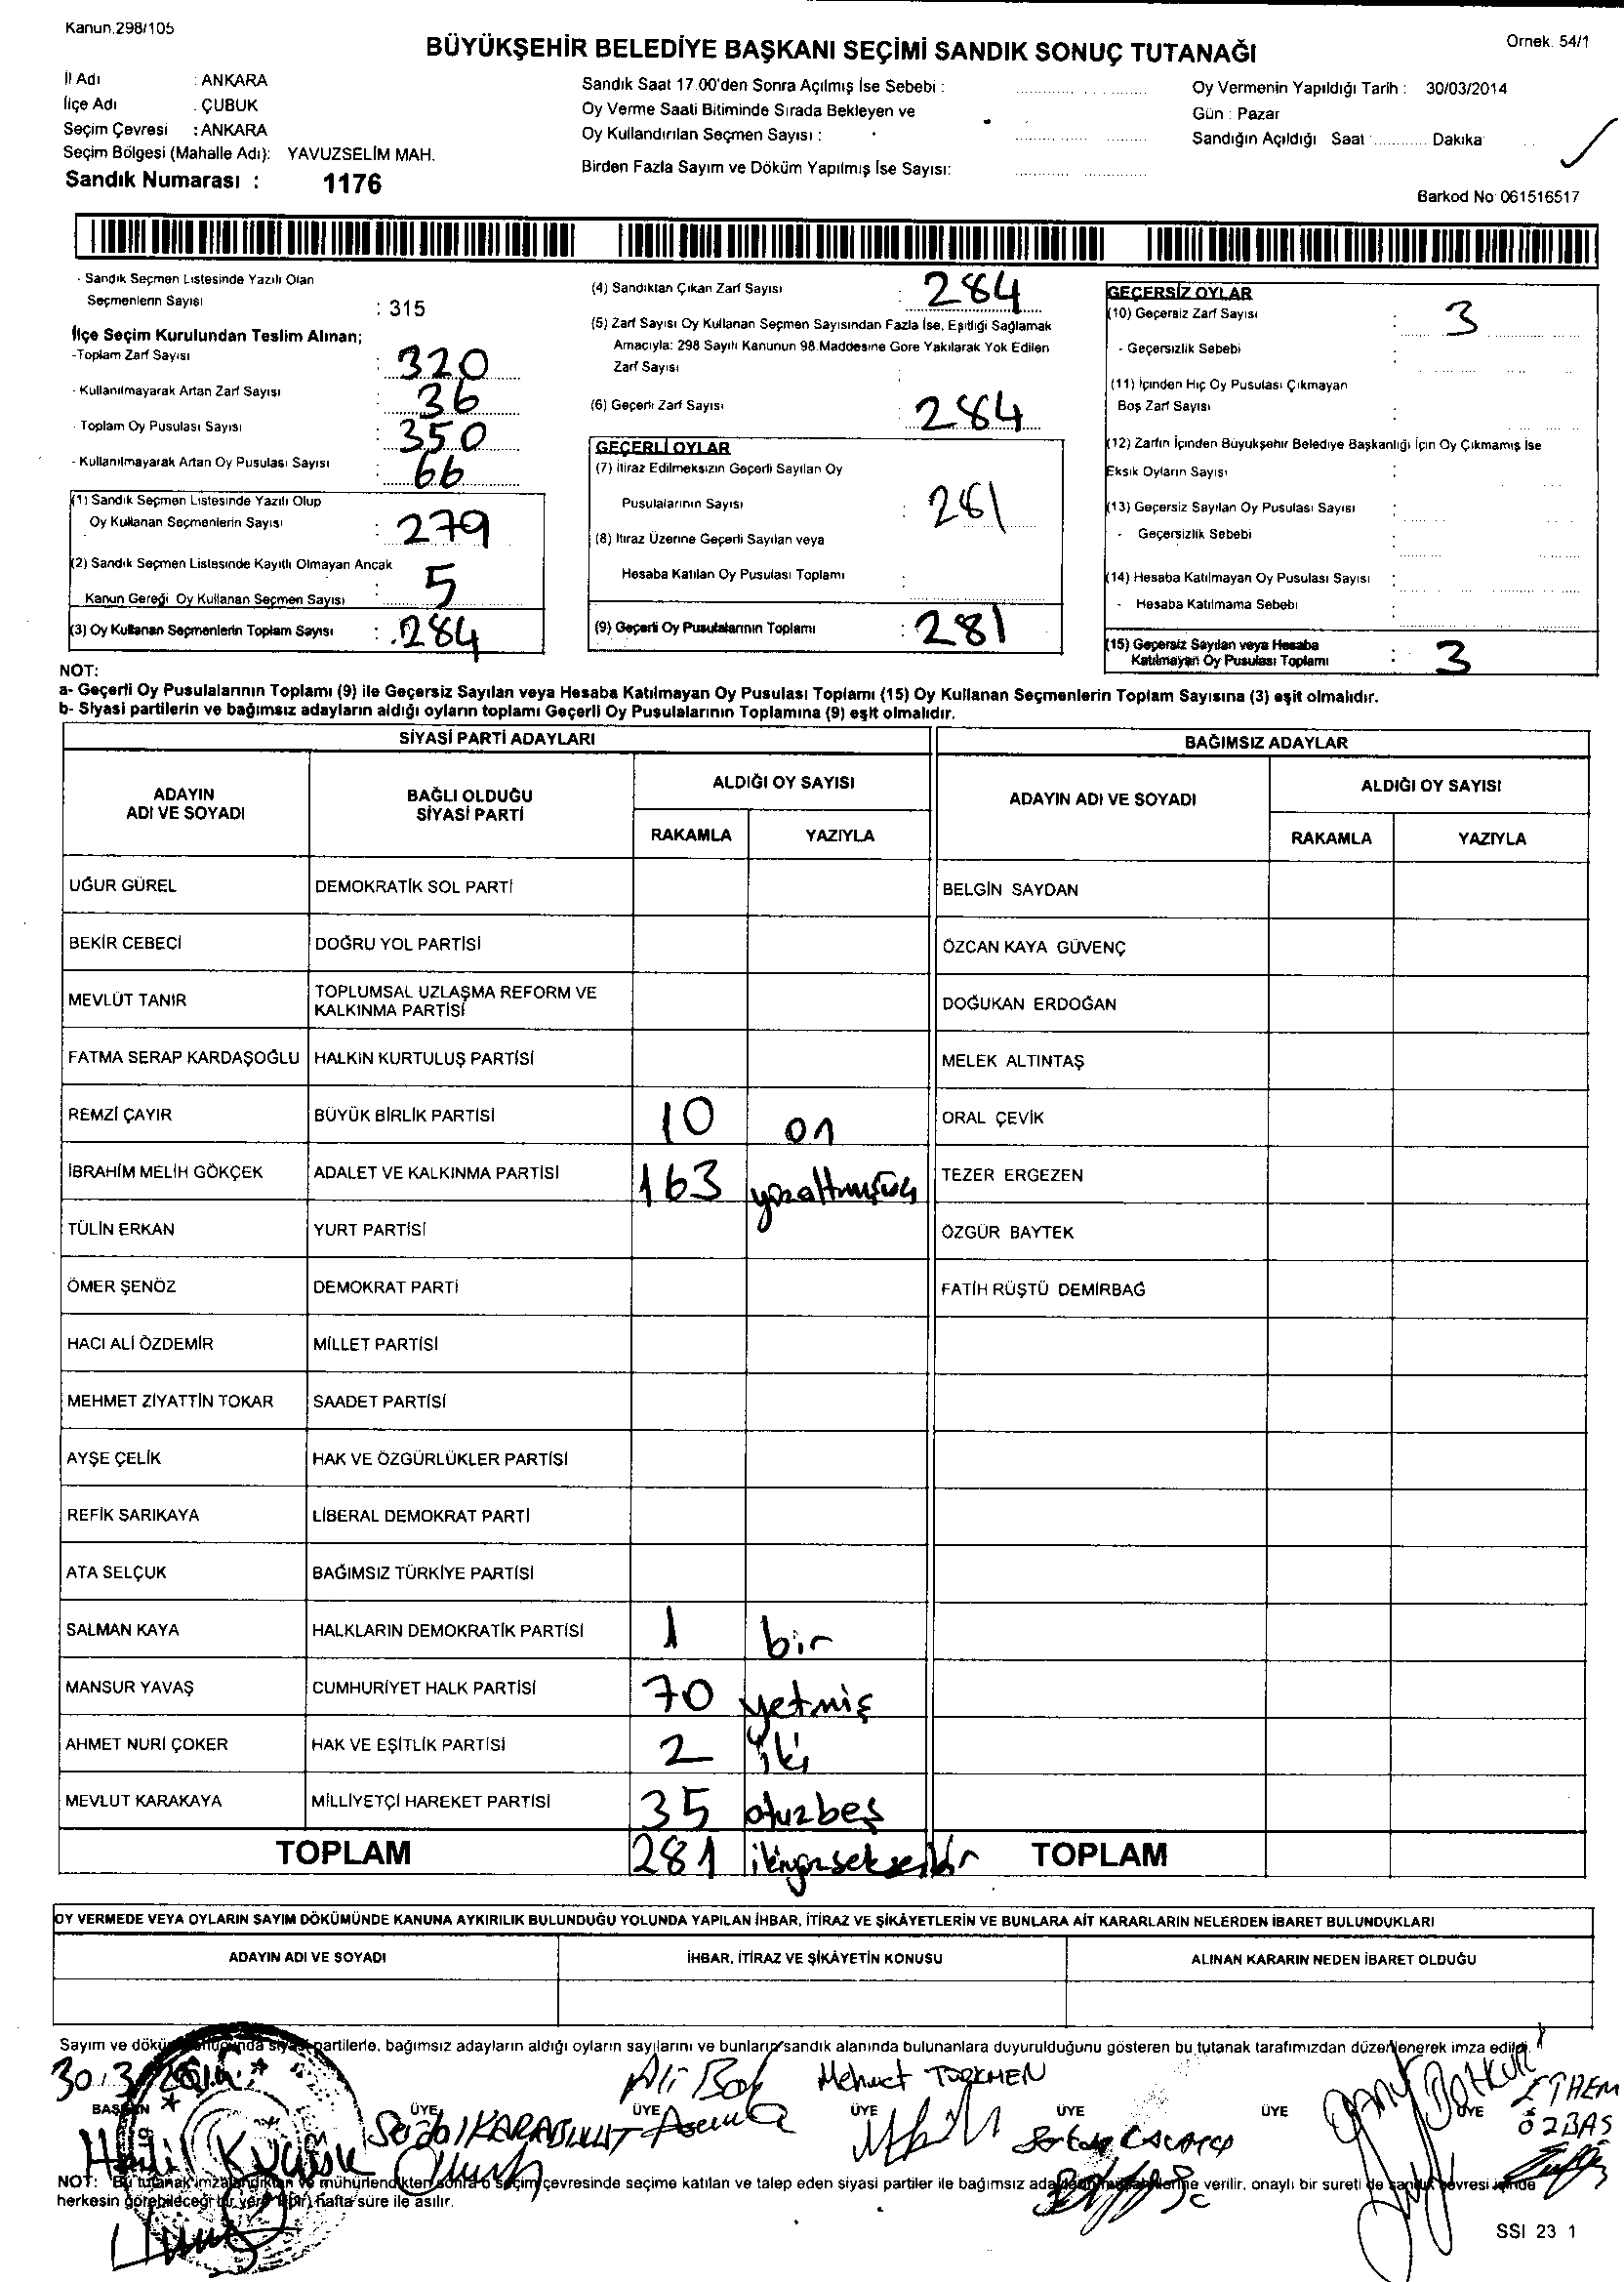 Kanun.298/105
Örnek. 54/1
BÜYÜKŞEHİR BELEDİYE BAŞKANI SEÇİMİ SANDIK SONUÇ TUTANAĞI
İl Adı : ANKARA
İlçe Adı : ÇUBUK
Seçim Çevresi : ANKARA
Seçim Bölgesi (Mahalle Adı): YAVUZSELİM MAH.
Sandık Numarası : 1176
Sandık Saat 17.00'den Sonra Açılmış İse Sebebi :
Oy Verme Saati Bitiminde Sırada Bekleyen ve
Oy Kullandırılan Seçmen Sayısı :
Birden Fazla Sayım ve Döküm Yapılmış İse Sayısı:
Oy Vermenin Yapıldığı Tarih : 30/03/2014
Gün : Pazar
Sandığın Açıldığı Saat Dakika
Barkod No: 061516517
- Sandık Seçmen Listesinde Yazılı Olan
Seçmenlerin Sayısı : 315
İlçe Seçim Kurulundan Teslim Alınan;
-Toplam Zarf Sayısı : 320
- Kullanılmayarak Artan Zarf Sayısı : 36
- Toplam Oy Pusulası Sayısı : 350
- Kullanılmayarak Artan Oy Pusulası Sayısı : 66
(1) Sandık Seçmen Listesinde Yazılı Olup
Oy Kullanan Seçmenlerin Sayısı : 279
(2) Sandık Seçmen Listesinde Kayıtlı Olmayan Ancak
Kanun Gereği Oy Kullanan Seçmen Sayısı : 5
(3) Oy Kullanan Seçmenlerin Toplam Sayısı : 284
(4) Sandıktan Çıkan Zarf Sayısı : 284
(5) Zarf Sayısı Oy Kullanan Seçmen Sayısından Fazla İse, Eşitliği Sağlamak
Amacıyla: 298 Sayılı Kanunun 98.Maddesine Göre Yakılarak Yok Edilen
Zarf Sayısı :
(6) Geçerli Zarf Sayısı 284
GEÇERLİ OYLAR
(7) İtiraz Edilmeksizin Geçerli Sayılan Oy
Pusulalarının Sayısı : 281
(8) İtiraz Üzerine Geçerli Sayılan veya
Hesaba Katılan Oy Pusulası Toplamı :
(9) Geçerli Oy Pusulalarının Toplamı : 281
GEÇERSİZ OYLAR
(10) Geçersiz Zarf Sayısı : 3
- Geçersizlik Sebebi :
(11) İçinden Hiç Oy Pusulası Çıkmayan
Boş Zarf Sayısı :
(12) Zarfın İçinden Büyükşehir Belediye Başkanlığı İçin Oy Çıkmamış İse
Eksik Oyların Sayısı :
(13) Geçersiz Sayılan Oy Pusulası Sayısı :
- Geçersizlik Sebebi :
(14) Hesaba Katılmayan Oy Pusulası Sayısı :
- Hesaba Katılmama Sebebi :
(15) Geçersiz Sayılan veya Hesaba
Katılmayan Oy Pusulası Toplamı : 3
NOT:
a- Geçerli Oy Pusulalarının Toplamı (9) ile Geçersiz Sayılan veya Hesaba Katılmayan Oy Pusulası Toplamı (15) Oy Kullanan Seçmenlerin Toplam Sayısına (3) eşit olmalıdır.
b- Siyasi partilerin ve bağımsız adayların aldığı oyların toplamı Geçerli Oy Pusulalarının Toplamına (9) eşit olmalıdır.
SİYASİ PARTİ ADAYLARI BAĞIMSIZ ADAYLAR
ADAYIN ADI VE SOYADI BAĞLI OLDUĞU SİYASİ PARTİ ALDIĞI OY SAYISI ADAYIN ADI VE SOYADI ALDIĞI OY SAYISI
RAKAMLA YAZIYLA RAKAMLA YAZIYLA
UĞUR GÜREL DEMOKRATİK SOL PARTİ BELGİN SAYDAN
BEKİR CEBECİ DOĞRU YOL PARTİSİ ÖZCAN KAYA GÜVENÇ
MEVLÜT TANIR TOPLUMSAL UZLAŞMA REFORM VE KALKINMA PARTİSİ DOĞUKAN ERDOĞAN
FATMA SERAP KARDAŞOĞLU HALKIN KURTULUŞ PARTİSİ MELEK ALTINTAŞ
REMZİ ÇAYIR BÜYÜK BİRLİK PARTİSİ 10 on ORAL ÇEVİK
İBRAHİM MELİH GÖKÇEK ADALET VE KALKINMA PARTİSİ 163 yüzaltmışüç TEZER ERGEZEN
TÜLİN ERKAN YURT PARTİSİ ÖZGÜR BAYTEK
ÖMER ŞENÖZ DEMOKRAT PARTİ FATİH RÜŞTÜ DEMİRBAĞ
HACI ALİ ÖZDEMİR MİLLET PARTİSİ
MEHMET ZİYATTİN TOKAR SAADET PARTİSİ
AYŞE ÇELİK HAK VE ÖZGÜRLÜKLER PARTİSİ
REFİK SARIKAYA LİBERAL DEMOKRAT PARTİ
ATA SELÇUK BAĞIMSIZ TÜRKİYE PARTİSİ
SALMAN KAYA HALKLARIN DEMOKRATİK PARTİSİ 1 bir
MANSUR YAVAŞ CUMHURİYET HALK PARTİSİ 70 yetmiş
AHMET NURİ ÇOKER HAK VE EŞİTLİK PARTİSİ 2 iki
MEVLUT KARAKAYA MİLLİYETÇİ HAREKET PARTİSİ 35 otuzbeş
TOPLAM 281 ikiyüzseksenbir TOPLAM
OY VERMEDE VEYA OYLARIN SAYIM DÖKÜMÜNDE KANUNA AYKIRILIK BULUNDUĞU YOLUNDA YAPILAN İHBAR, İTİRAZ VE ŞİKÂYETLERİN VE BUNLARA AİT KARARLARIN NELERDEN İBARET BULUNDUKLARI
ADAYIN ADI VE SOYADI İHBAR, İTİRAZ VE ŞİKÂYETİN KONUSU ALINAN KARARIN NEDEN İBARET OLDUĞU
Sayım ve döküm siyasi partilerle, bağımsız adayların aldığı oyların sayılarını ve bunların sandık alanında bulunanlara duyurulduğunu gösteren bu tutanak tarafımızdan düzenlenerek imza edildi.
30.3.2014
Mehmet TÜRKMEN
ETHEM
ÖZBAŞ
BAŞKAN ÜYE ÜYE ÜYE ÜYE ÜYE ÜYE
KARABULUT
NOT: Bu tutanak imzalandıktan ve mühürlendikten sonra o seçim çevresinde seçime katılan ve talep eden siyasi partiler ile bağımsız verilir, onaylı bir sureti de sandık çevresi içinde
herkesin görebileceği bir yere (bir) hafta süre ile asılır.
SSI 23 1